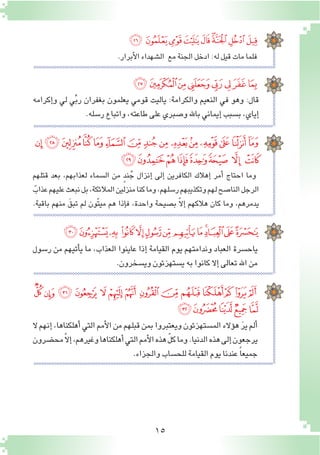 قِيلَ ادْخُلِ الْجَنَّةَ قَالَ يَا لَيْتَ قَوْمِي يَعْلَمُونَ ﴿٢٦﴾
فلما مات قيل له: ادخل الجنة مع الشهداء الأبرار.
بِمَا غَفَرَ لِي رَبِّي وَجَعَلَنِي مِنَ الْمُكْرَمِينَ ﴿٢٧﴾
قال: وهو في النعيم والكرامة: ياليت قومي يعلمون بغفران ربِّي لي وإكرامه
إياي، بسبب إيماني بالله وصبري على طاعته، واتباع رسله.
وَمَا أَنزَلْنَا عَلَىٰ قَوْمِهِ مِن بَعْدِهِ مِن جُندٍ مِّنَ السَّمَاءِ وَمَا كُنَّا مُنزِلِينَ ﴿٢٨﴾ إِن
كَانَتْ إِلَّا صَيْحَةً وَاحِدَةً فَإِذَا هُمْ خَامِدُونَ ﴿٢٩﴾
وما احتاج أمر إهلاك الكافرين إلى إنزال جُندٍ من السماء لعذابهم، بعد قتلهم
الرجل الناصح لهم وتكذيبهم رسلهم، وما كنا منزلين الملائكة، بل نبعث عليهم عذاباً
يدمرهم، وما كان هلاكهم إلاَّ بصيحة واحدة، فإذا هم ميتّون لم تبقَ منهم باقية.
يَا حَسْرَةً عَلَى الْعِبَادِ مَا يَأْتِيهِم مِّن رَّسُولٍ إِلَّا كَانُوا بِهِ يَسْتَهْزِئُونَ ﴿٣٠﴾
ياحسرة العباد وندامتهم يوم القيامة إذا عاينوا العذاب، ما يأتيهم من رسول
من الله تعالى إلا كانوا به يستهزئون ويسخرون.
أَلَمْ يَرَوْا كَمْ أَهْلَكْنَا قَبْلَهُم مِّنَ الْقُرُونِ أَنَّهُمْ إِلَيْهِمْ لَا يَرْجِعُونَ ﴿٣١﴾ وَإِن كُلٌّ
لَّمَّا جَمِيعٌ لَّدَيْنَا مُحْضَرُونَ ﴿٣٢﴾
ألم يرَ هؤلاء المستهزئون ويعتبروا بمن قبلهم من الأمم التي أهلكناها، إنهم لا
يرجعون إلى هذه الدنيا. وما كلّ هذه الأمم التي أهلكناها وغيرهم، إلاَّ محضرون
جميعاً عندنا يوم القيامة للحساب والجزاء.
١٥